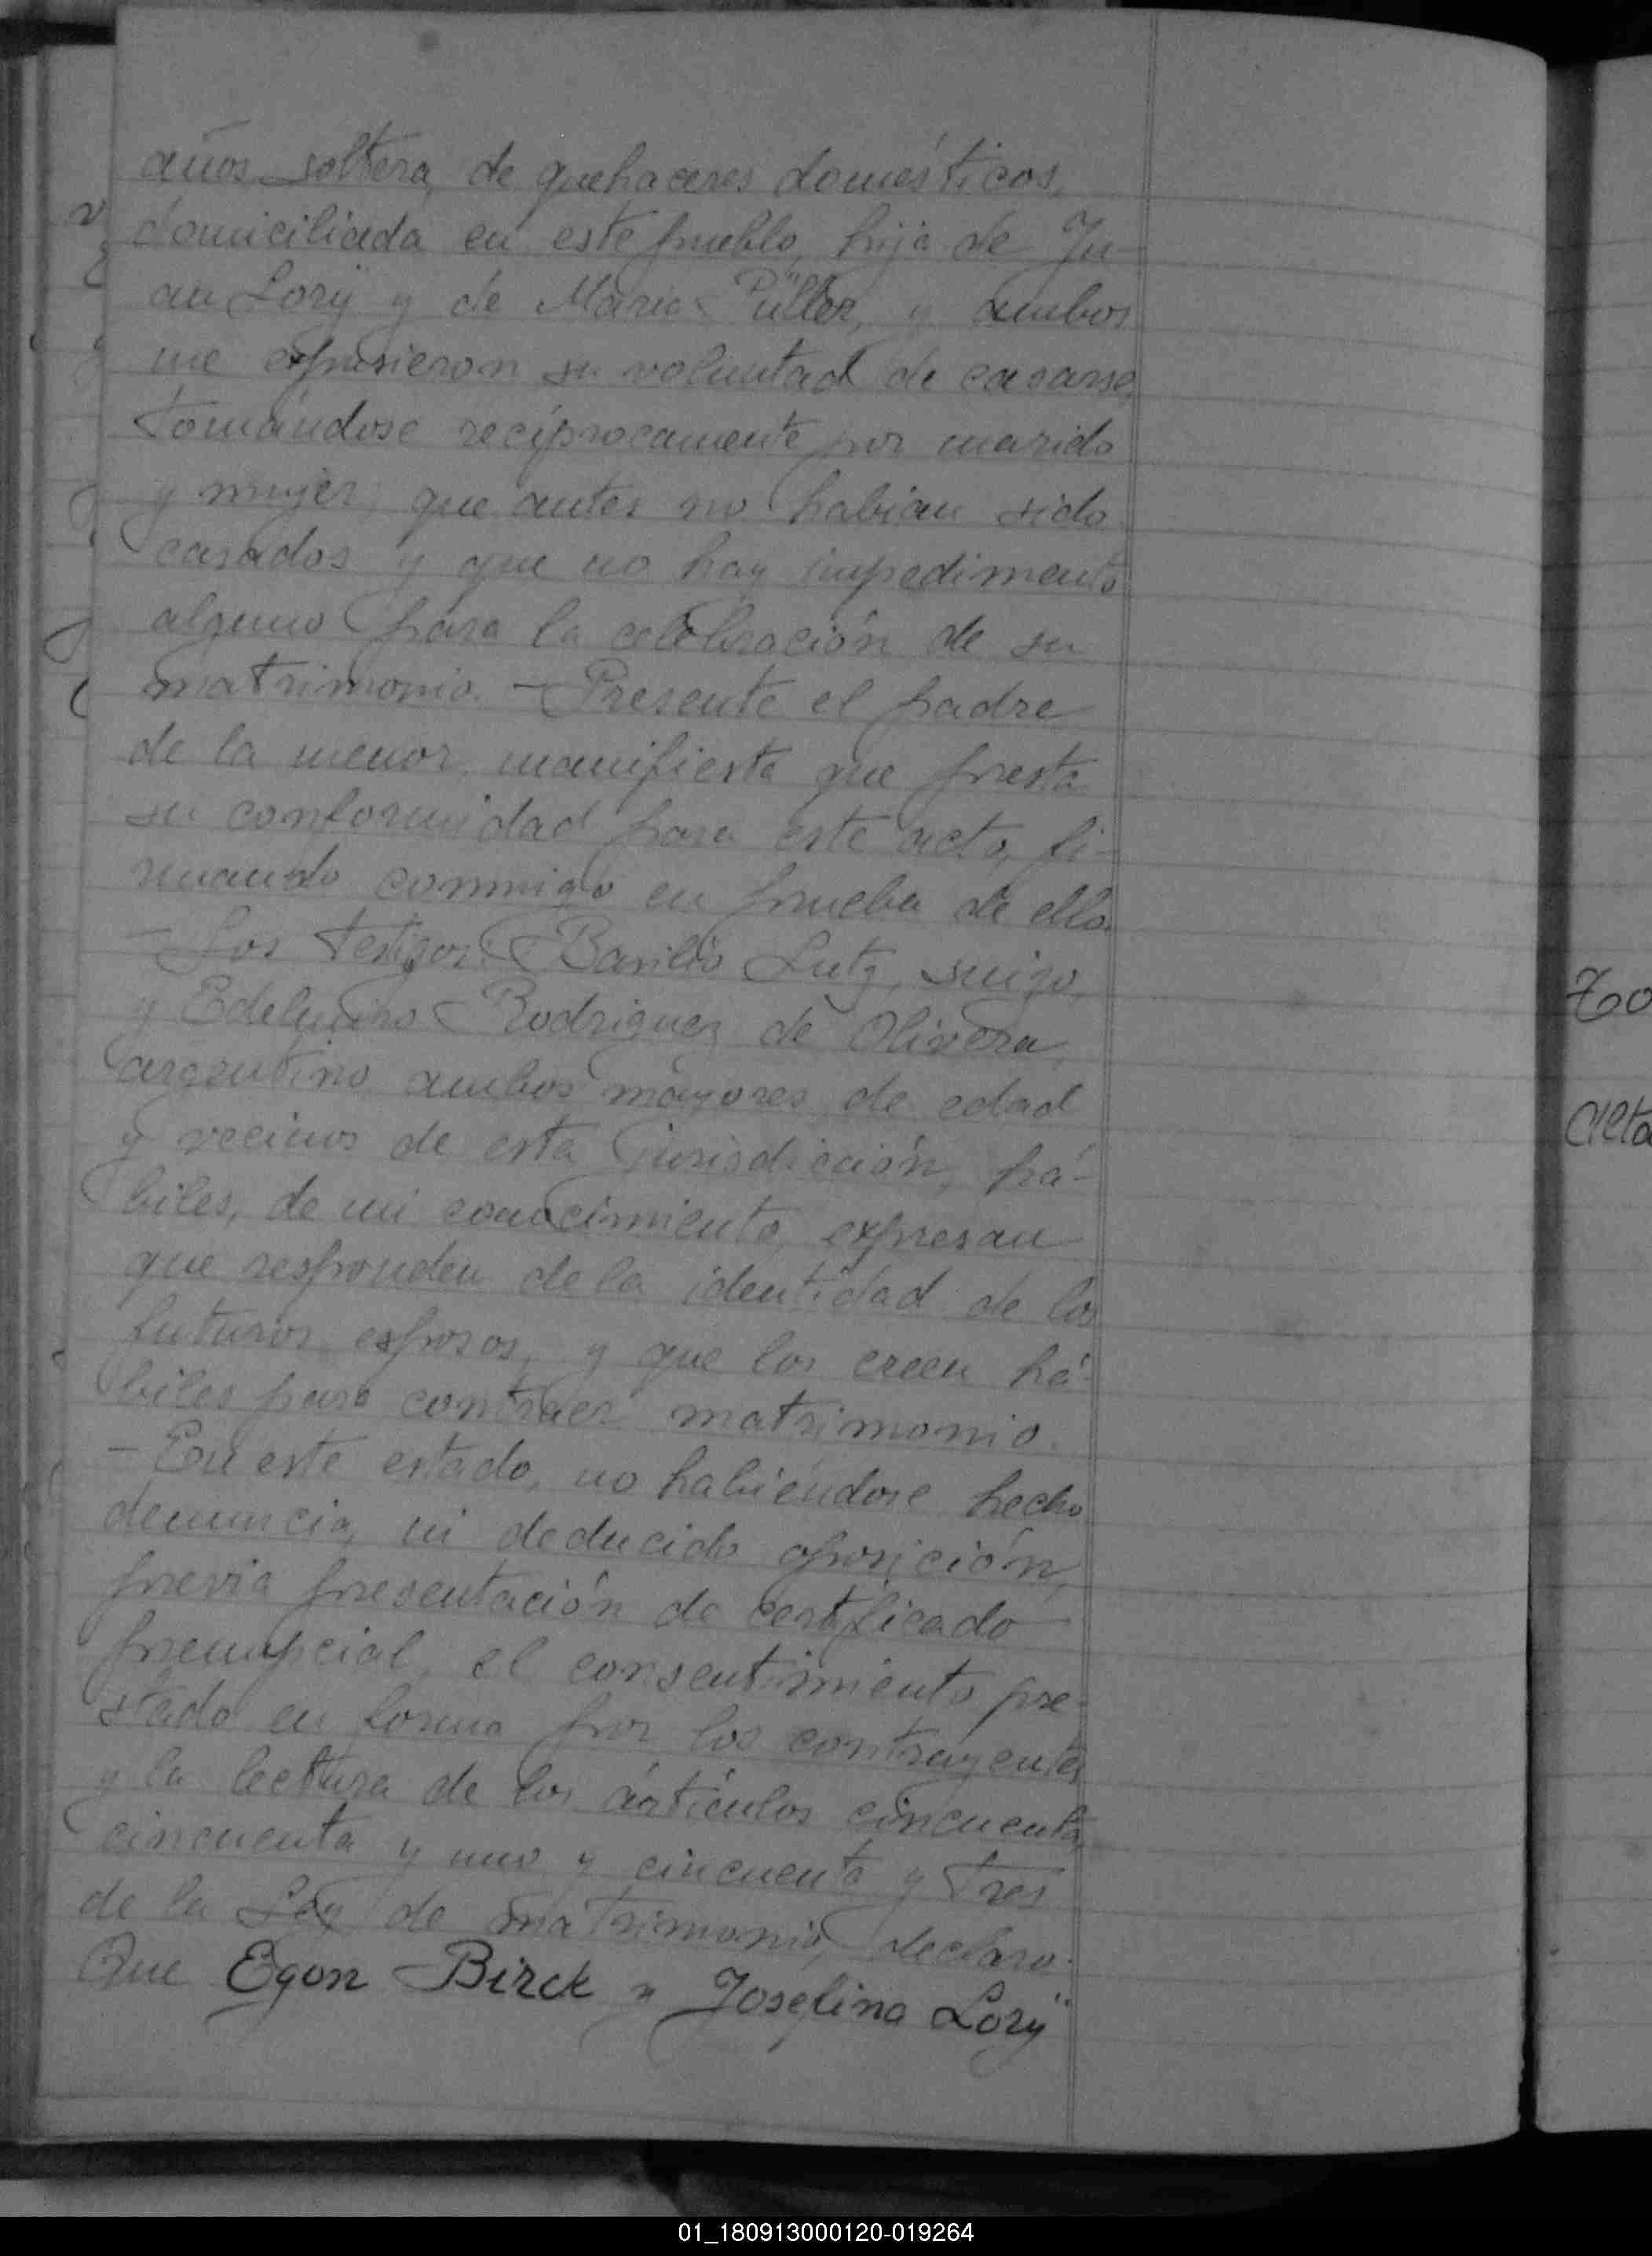 años soltera, de quehaceres domésticos,
domiciliada en este pueblo, hija de Ju-
an Lorÿ y de Maria Püller, y ambos
me expusieron su voluntad de casarse,
tomándose recíprocamente por marido
y mujer, que antes no habian sido
casados y que no hay impedimento
alguno para la celebración de su
matrimonio. - Presente el padre
de la menor, manifiesta que presta
su conformidad para este acto, fi-
rmando conmigo en prueba de ello.
- Los testigos: Basilio Lutz, suizo,
y Edelmiro Rodriguez de Olivera,
argentino, ambos mayores de edad
y vecinos de esta jurisdicción, há-
biles, de mi conocimiento, expresan
que responden de la identidad de los
futuros esposos, y que los creen há-
biles para contraer matrimonio.
- En este estado, no habiéndose hecho
denuncia, ni deducido oposición,
previa presentación de certificado
prenupcial, el consentimiento pre-
stado en forma por los contrayentes
y la lectura de los artículos cincuenta,
cincuenta y uno y cincuenta y tres
de la Ley de matrimonio, declaro:
Que Egon Birck y Josefina Lorÿ
01_180913000120-019264